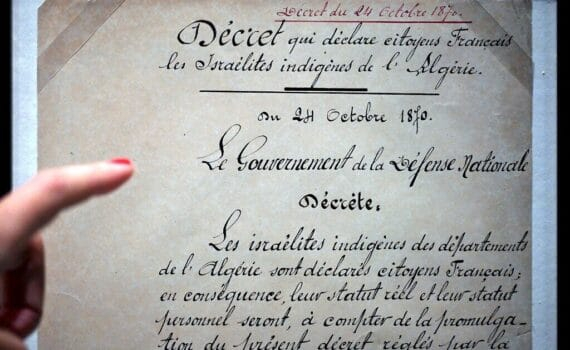 Décret du 24 Octobre 1870.
Décret qui déclare citoyens Français
les Israëlites indigènes de l'Algérie.
Du 24 Octobre 1870.
Le Gouvernement de la Défense Nationale
Décrète:
Les israëlites indigènes des départements
de l'Algérie sont déclarés citoyens Français;
en conséquence, leur statut réel et leur statut
personnel seront, à compter de la promulga-
tion du présent décret réglés par la